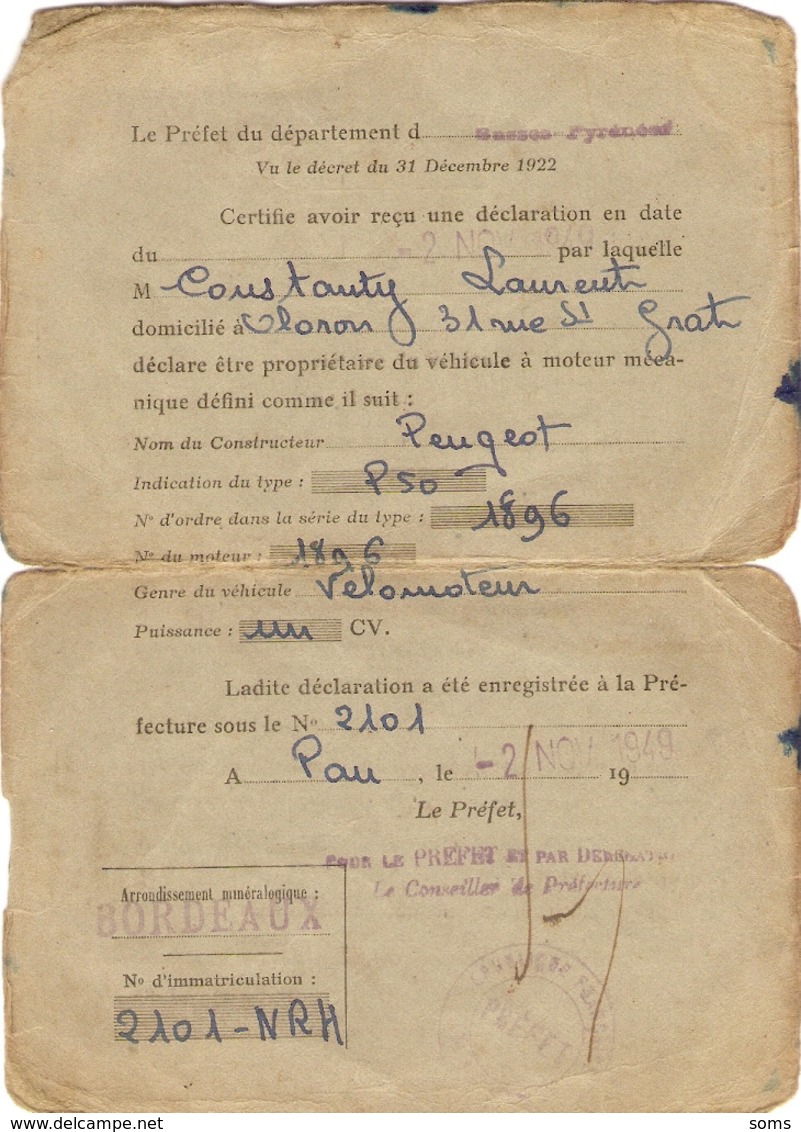 Le Préfet du département d Basses Pyrénées
Vu le décret du 31 Décembre 1922
Certifie avoir reçu une déclaration en date
du -2 NOV 1949 par laquelle
M Constanty Laurent
domicilié à Oloron 31 rue St Grat
déclare être propriétaire du véhicule à moteur méca-
nique défini comme il suit :
Nom du Constructeur Peugeot
Indication du type : P50
N° d'ordre dans la série du type : 1896
N° du moteur : 1896
Genre du véhicule Vélomoteur
Puissance : un CV.
Ladite déclaration a été enregistrée à la Pré-
fecture sous le N° 2101
A Pau , le -2 NOV 1949 19
Le Préfet,
POUR LE PRÉFET ET PAR DÉLÉGATION
Le Conseiller de Préfecture
Arrondissement minéralogique :
BORDEAUX
N° d'immatriculation :
2101-NRH
PRÉFET
soms